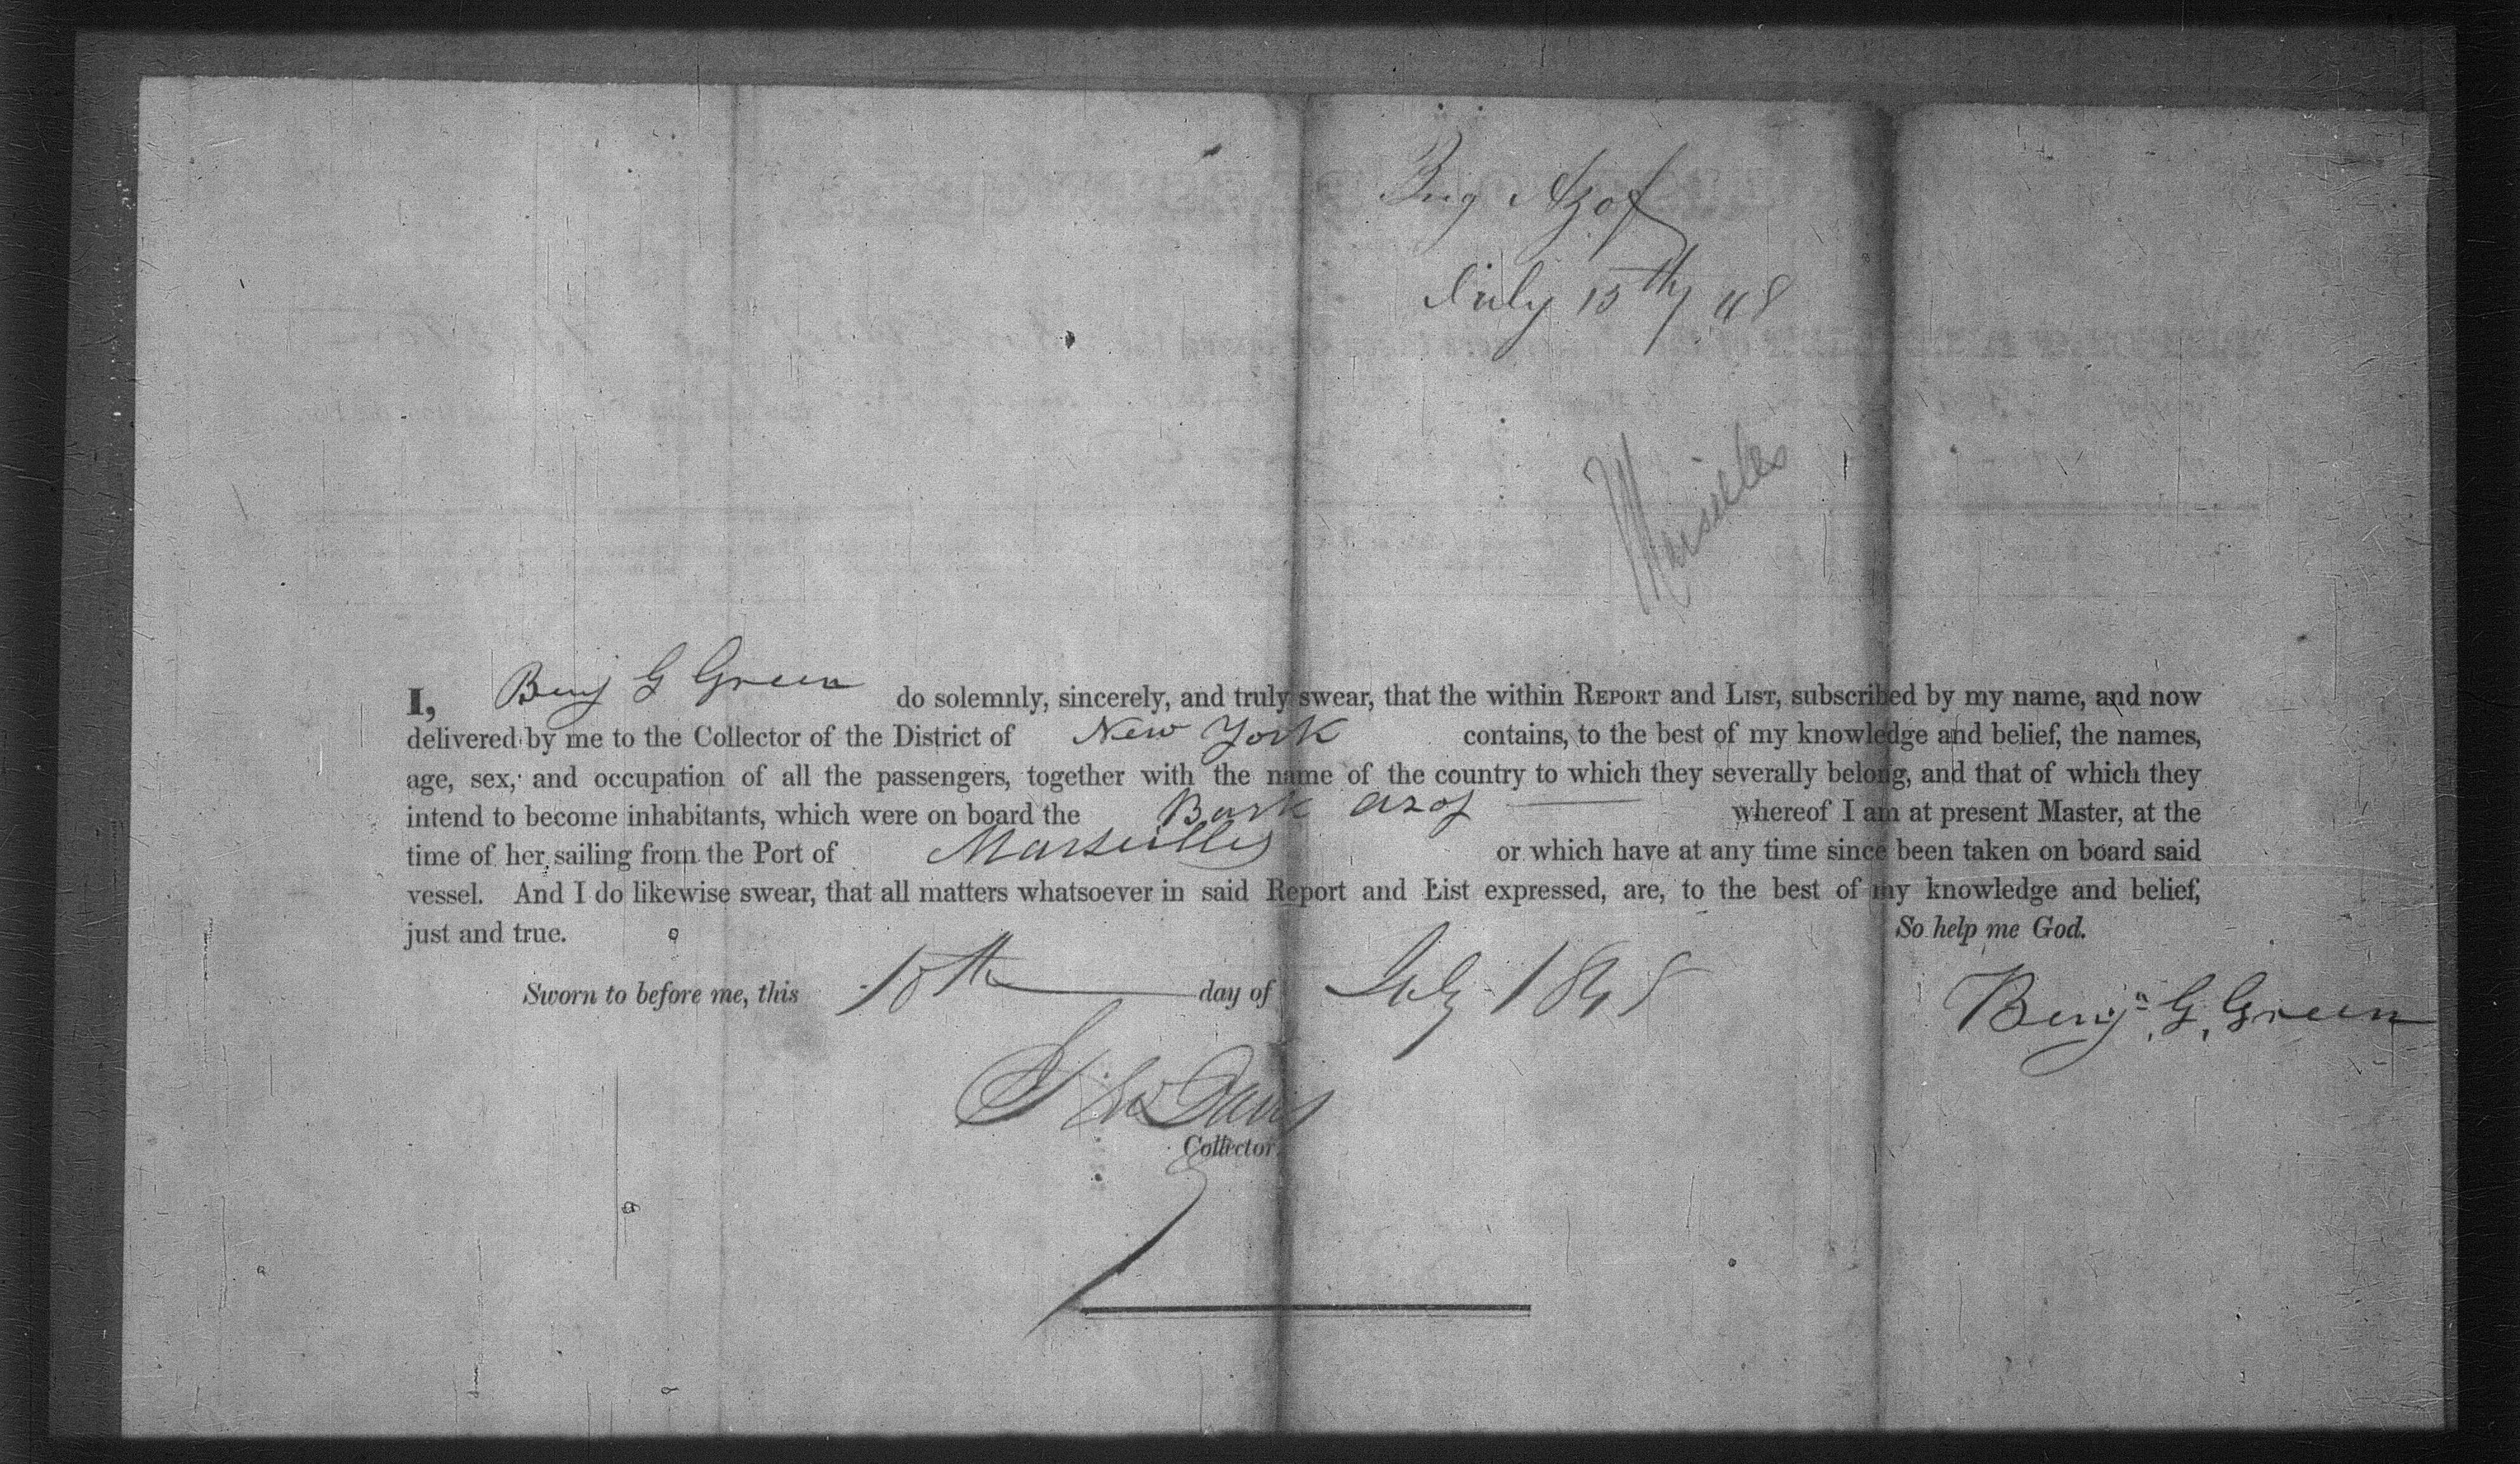 Brig Azof
July 15th 48
Marseilles
I, Benj G Green do solemnly, sincerely, and truly swear, that the within REPORT and LIST, subscribed by my name, and now
delivered by me to the Collector of the District of New York contains, to the best of my knowledge and belief, the names,
age, sex, and occupation of all the passengers, together with the name of the country to which they severally belong, and that of which they
intend to become inhabitants, which were on board the Bark Azof whereof I am at present Master, at the
time of her sailing from the Port of Marseilles or which have at any time since been taken on board said
vessel. And I do likewise swear, that all matters whatsoever in said Report and List expressed, are, to the best of my knowledge and belief,
just and true. So help me God.
Sworn to before me, this 15th day of July 1848
Benjn G. Green
Davis
Collector